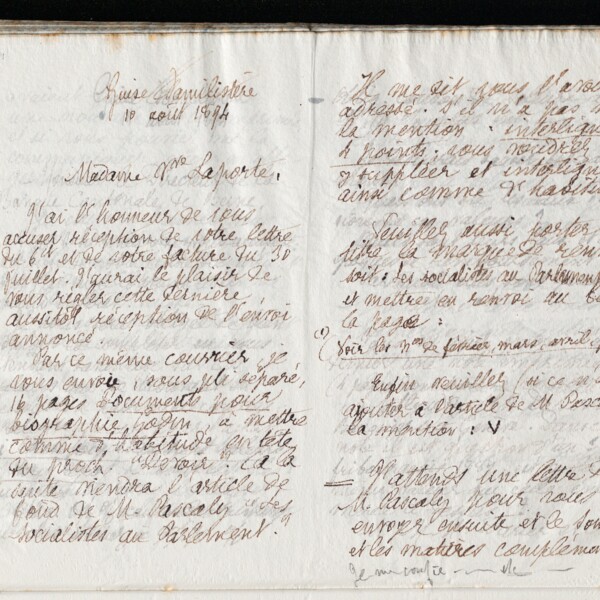 Guise Familistère
10 août 1894
Madame Vve Laporte,
J'ai l'honneur de vous
accuser réception de votre lettre
du 6 ct et de votre facture du 30
juillet. J'aurai le plaisir de
vous régler cette dernière,
aussitôt réception de l'envoi
annoncé.
Par ce même courrier, je
vous envoie, sous pli séparé,
16 pages documents pour
biographie godin, à mettre
comme d'habitude en tête
du proch. "Devoir". Ca la
suite viendra l'article de
fond de M. Pascaly "Les
socialistes au Parlement."
Il me dit vous l'avoi
adressé. S'il n'a pas
la mention : interligne
4 points, vous voudrez
y suppléer et interlign
ainsi comme d'habitu
Veuillez aussi porter
titre la marque de renv
soit : Les socialistes au Parlement
et mettre en renvoi au b
la page :
(1) (Voir les Nos de février, mars, avril,
Enfin veuillez, si ce n'
ajouter à l'article de M. Pasc
la mention : V
= J'attends une lettre d
M. Pascaly pour vous
envoyer ensuite et le Som
et les matières complém
Je me confie